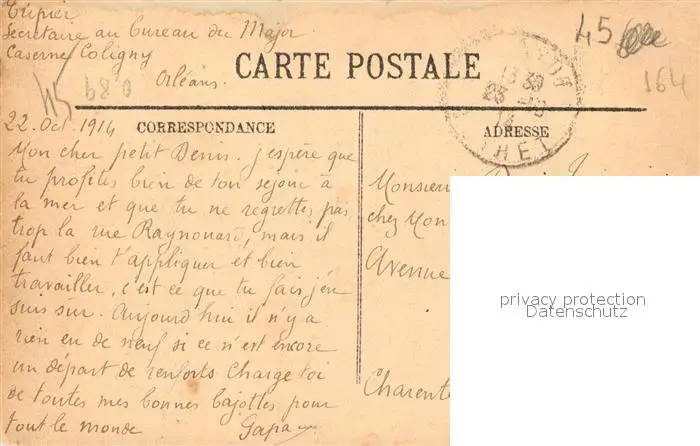 Tripier
Secrétaire au Bureau du Major
Caserne Coligny
Orléans.
45
164
45 680
CARTE POSTALE
13 30
23 -10
14
22. Oct. 1914
CORRESPONDANCE
ADRESSE
Mon cher petit Denis. j'espère que
tu profites bien de ton séjour à
la mer et que tu ne regrettes pas
trop la rue Raynouard, mais il
faut bien t'appliquer et bien
travailler, c'est ce que tu fais j'en
suis sûr. Aujourd'hui il n'y a
rien eu de neuf si ce n'est encore
un départ de renforts Charge toi
de toutes mes bonnes bajottes pour
tout le monde Gapa
Monsieur
chez Mon
Avenue
Charente
privacy protection
Datenschutz